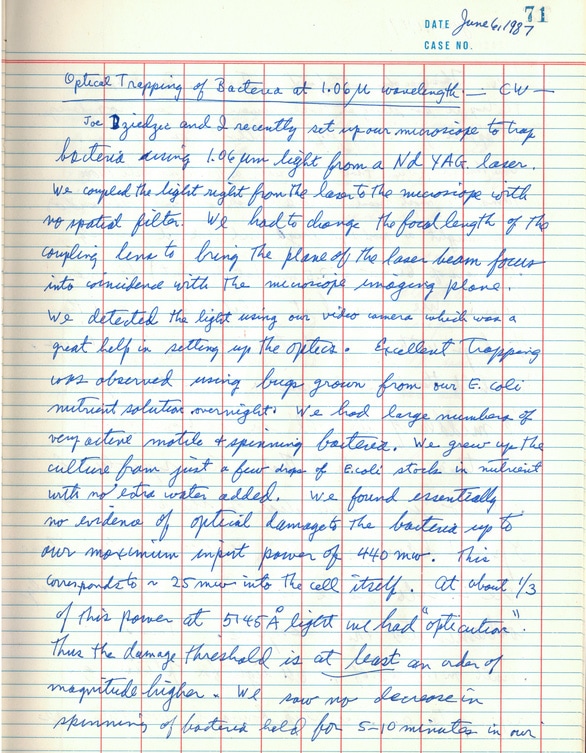 71
DATE June 6, 1987
CASE NO.
Optical Trapping of Bacteria at 1.06 μ wavelength — CW —
Joe Dziedzic and I recently set up our microscope to trap
bacteria using 1.06 μm light from a Nd YAG laser.
We coupled the light right from the laser to the microscope with
no spatial filter. We had to change the focal length of the
coupling lens to bring the plane of the laser beam focus
into coincidence with the microscope imaging plane.
We detected the light using our video camera which was a
great help in setting up the optics. Excellent Trapping
was observed using bugs grown from our E. coli
nutrient solution overnight. We had large numbers of
very active motile & spinning bacteria. We grew up the
culture from just a few drops of E.coli stock in nutrient
with no extra water added. We found essentially
no evidence of optical damage to the bacteria up to
our maximum input power of 440 mw. This
corresponds to ~ 25 mw into the cell itself. At about 1/3
of this power at 5145 Å light we had "opticution".
Thus the damage threshold is at least an order of
magnitude higher. We saw no decrease in
spinning of bacteria held for 5-10 minutes in our